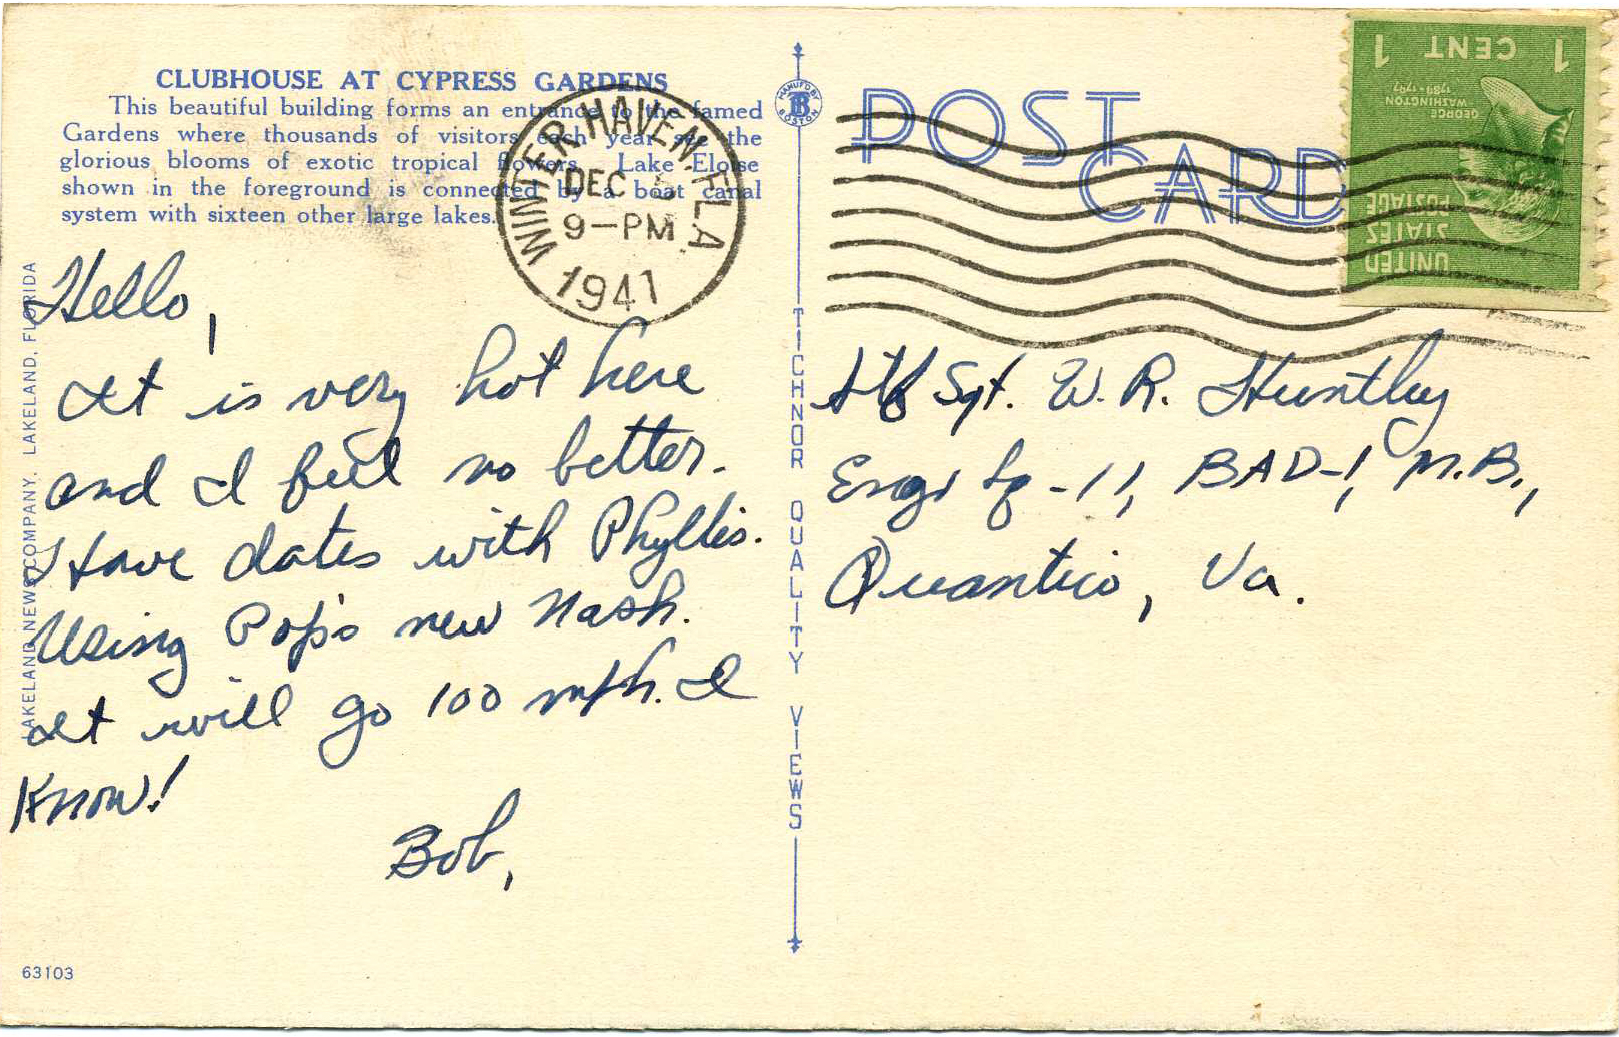 CLUBHOUSE AT CYPRESS GARDENS
This beautiful building forms an entrance to the famed
Gardens where thousands of visitors each year see the
glorious blooms of exotic tropical flowers. Lake Eloise
shown in the foreground is connected by a boat canal
system with sixteen other large lakes.
WINTER HAVEN, FLA.
DEC
9-PM
1941
MANUF'D BY
TB
BOSTON
POST
CARD
1 CENT 1
GEORGE
WASHINGTON
1789-1797
UNITED
STATES
POSTAGE
Hello,
It is very hot here
and I feel no better.
Have dates with Phyllis.
Using Pop's new Nash.
It will go 100 mph. I
Know!
Bob,
Sgt. W. R. Huntley
Engr Sq-11, BAD-1, M.B.,
Quantico, Va.
LAKELAND NEWS COMPANY, LAKELAND, FLORIDA
TICHNOR QUALITY VIEWS
63103